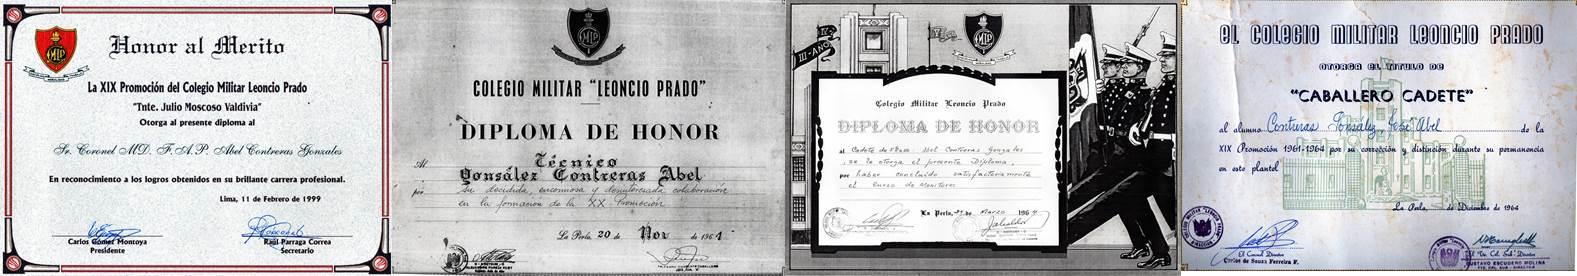 Honor al Merito
La XIX Promoción del Colegio Militar Leoncio Prado
"Tnte. Julio Moscoso Valdivia"
Otorga al presente diploma al
Sr. Coronel MD. F.A.P. Abel Contreras Gonzales
En reconocimiento a los logros obtenidos en su brillante carrera profesional.
Lima, 11 de Febrero de 1999
Carlos Gómez Montoya
Presidente
Raúl Parraga Correa
Secretario
COLEGIO MILITAR "LEONCIO PRADO"
DIPLOMA DE HONOR
Al Técnico
González Contreras Abel
por su decidida, y desinteresada colaboración
en la formación de la XX Promoción
La Perla, 20 de Nov de 196
III-AÑO
Colegio Militar Leoncio Prado
DIPLOMA DE HONOR
al Cadete de Abel Contreras Gonzales
se le otorga el presente Diploma,
por haber concluido satisfactoriamente
el Curso de Monitores
La Perla, de Marzo 196
EL COLEGIO MILITAR LEONCIO PRADO
OTORGA EL TITULO DE
"CABALLERO CADETE"
al alumno Contreras González José Abel de la
XIX Promoción 1961-1964 por su corrección y distinción durante su permanencia
en este plantel
La Perla, de Diciembre de 1964
El Coronel Director
Carlos de Souza Ferreira F.
El Tte. Crl. Sub-Director
GUSTAVO ESCUDERO MOLINA
TTE. CRL. SUB-DIRECTOR